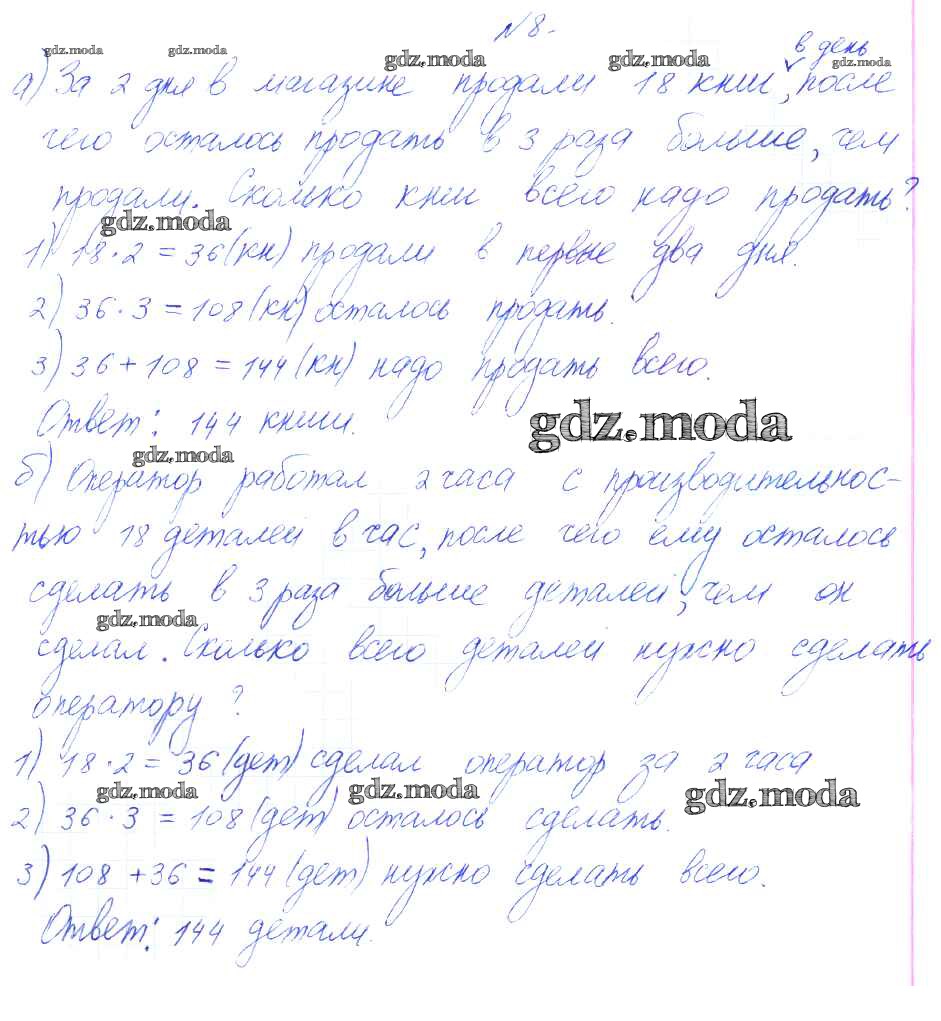 №8.
gdz.moda gdz.moda gdz.moda gdz.moda в день gdz.moda
а) За 2 дня в магазине продали 18 книг, после
чего осталось продать в 3 раза больше, чем
продали. Сколько книг всего надо продать?
gdz.moda
1) 18·2 = 36(кн) продали в первые два дня.
2) 36·3 = 108(кн) осталось продать.
3) 36+108 = 144(кн) надо продать всего.
Ответ: 144 книги.
gdz.moda
gdz.moda
б) Оператор работал 2 часа с производительнос-
тью 18 деталей в час, после чего ему осталось
сделать в 3 раза больше деталей, чем он
gdz.moda
сделал. Сколько всего деталей нужно сделать
оператору?
1) 18·2 = 36(дет) сделал оператор за 2 часа
gdz.moda gdz.moda gdz.moda
2) 36·3 = 108(дет) осталось сделать.
3) 108+36 = 144(дет) нужно сделать всего.
Ответ: 144 детали.